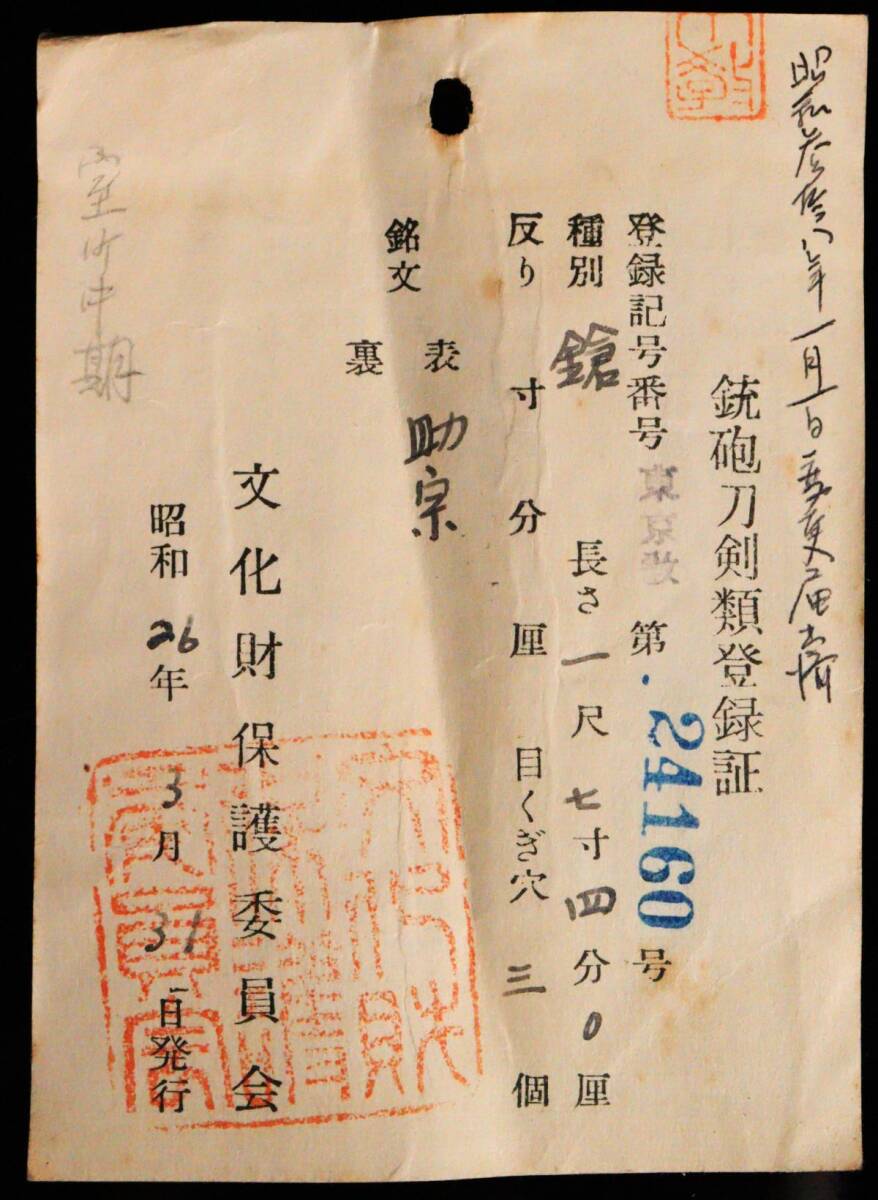 昭和参拾八年一月一日変更届出済
銃砲刀剣類登録証
登録記号番号 東京 第24160号
種別 鎗 長さ 一尺七寸四分0厘
反り 寸 分 厘 目くぎ穴 三 個
銘文
表 助宗
裏
文化財保護委員会
昭和26年3月31日発行
室町中期